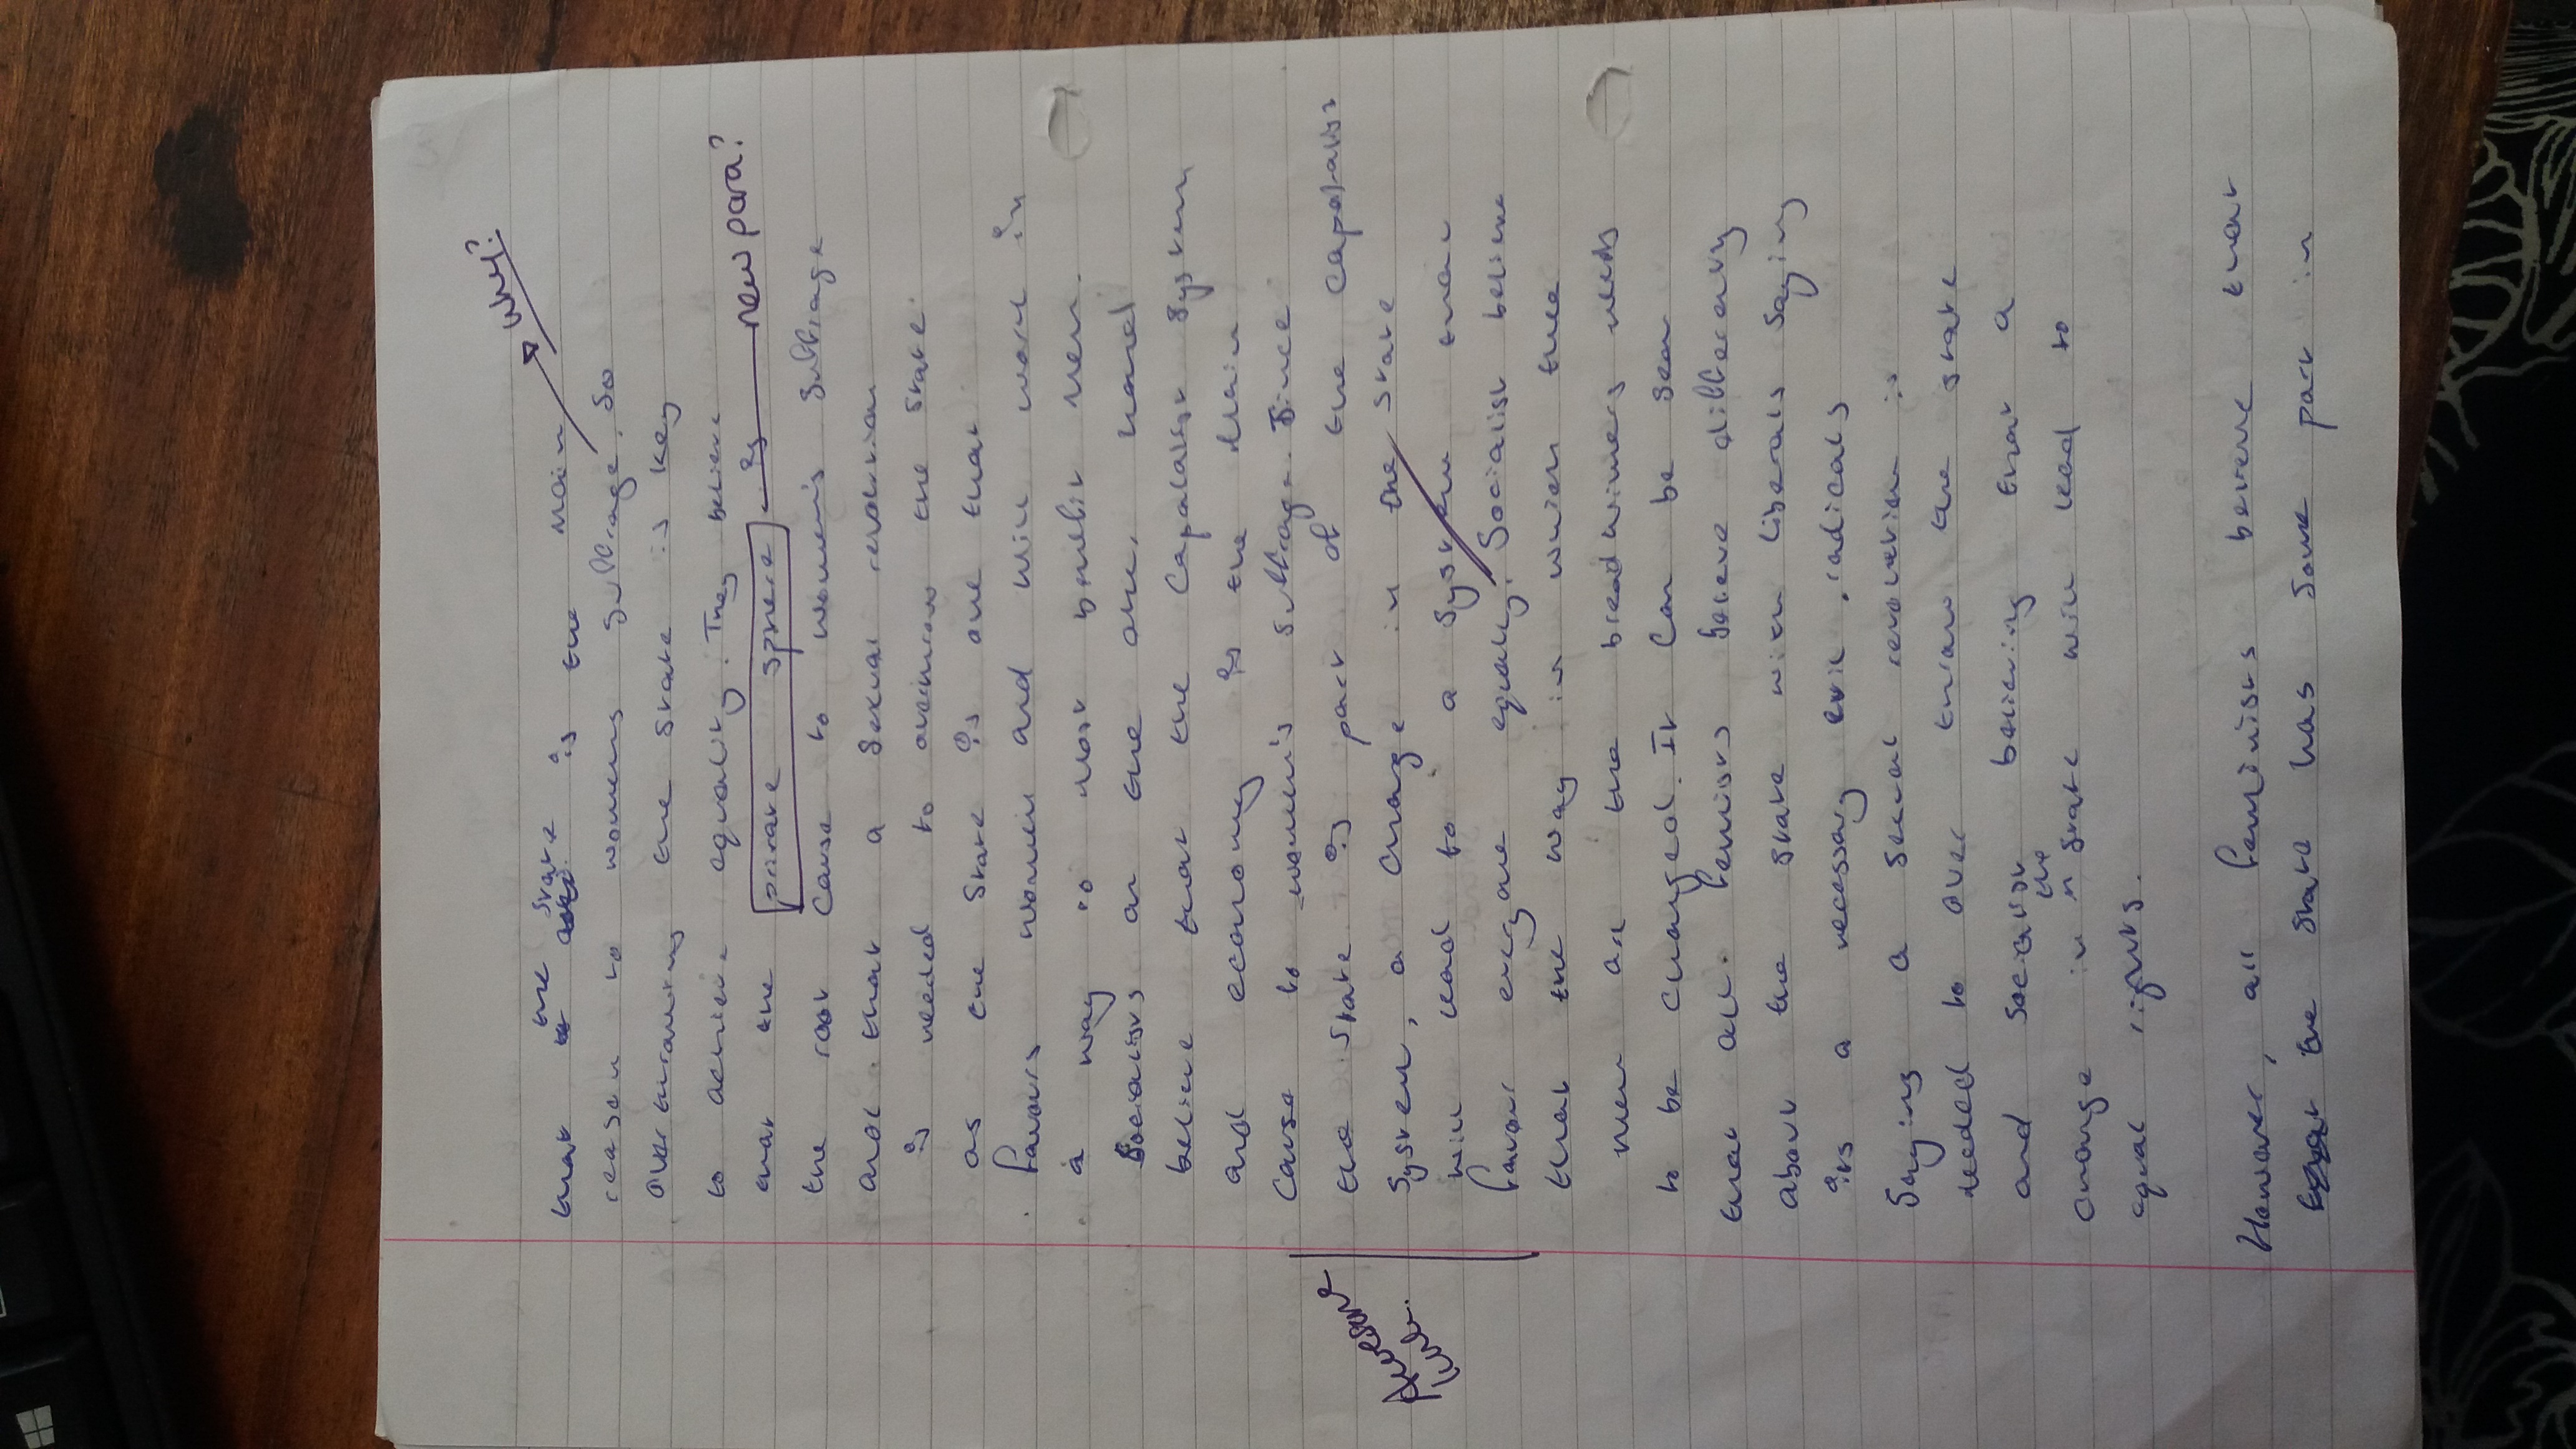 why?
that the state is the main
reason to womens suffrage. So
overthrowing the state is key
to achieve equality. They believe
that the private sphere is new para?
the root cause to women's suffrage
and that a sexual revolution
is needed to overthrow the state.
as the state is one that
favours women and will work in
a way to most benifit men.
Socialists on the other hand
beline that the capatalist system
and economy is the main
cause to women's suffrage. Since
the state is part of the capatalist
system, a change in the state
will lead to a system that
favour everyone equally. Socialist believe
that the way in which the
men are the breadwinners needs
to be changed. It can be seen
that all feminists believe differently
about the state with liberals saying
its a necessary evil, radicals
saying a sexual revolution is
needed to over throw the state
and socialist believing that a
change in the state will lead to
equal rights.
However, all feminists believe that
the state has some part in